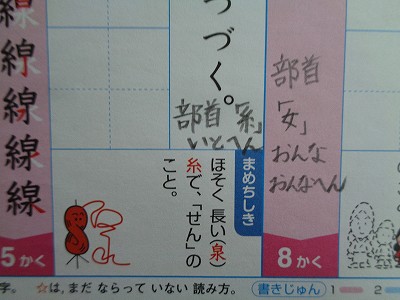 部首
「女」
おんな
おんなへん
8かく
つづく。
部首「糸」
いとへん
まめちしき
ほそく 長い(泉)
糸で、「せん」の
こと。
線線線線線
5かく
字。 ☆は、まだ ならって いない 読み方。 書きじゅん 1 2